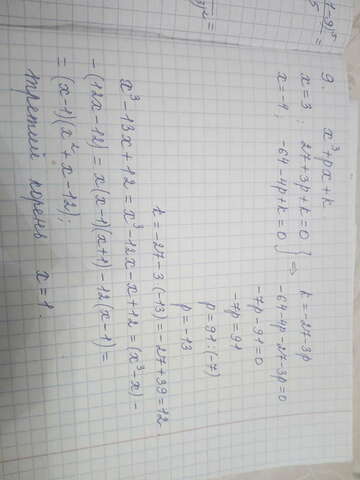 (1-9)⁵
5
=
9. x³+px+k
x=3; 27+3p+k=0 } ⇒ k=-27-3p
x=-4; -64-4p+k=0 -64-4p-27-3p=0
-7p-91=0
-7p=91
p=91:(-7)
p=-13
k=-27-3(-13)=-27+39=12
x³-13x+12=x³-12x-x+12=(x³-x)-
-(12x-12)=x(x-1)(x+1)-12(x-1)=
=(x-1)(x²+x-12);
третий корень x=1.